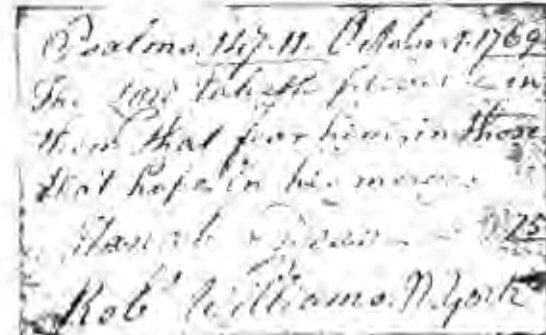 Psalms. 147.11. October 1. 1769
The Lord taketh pleasure in
them that fear him, in those
that hope in his mercy.
25
Rob^t Williams. N. York